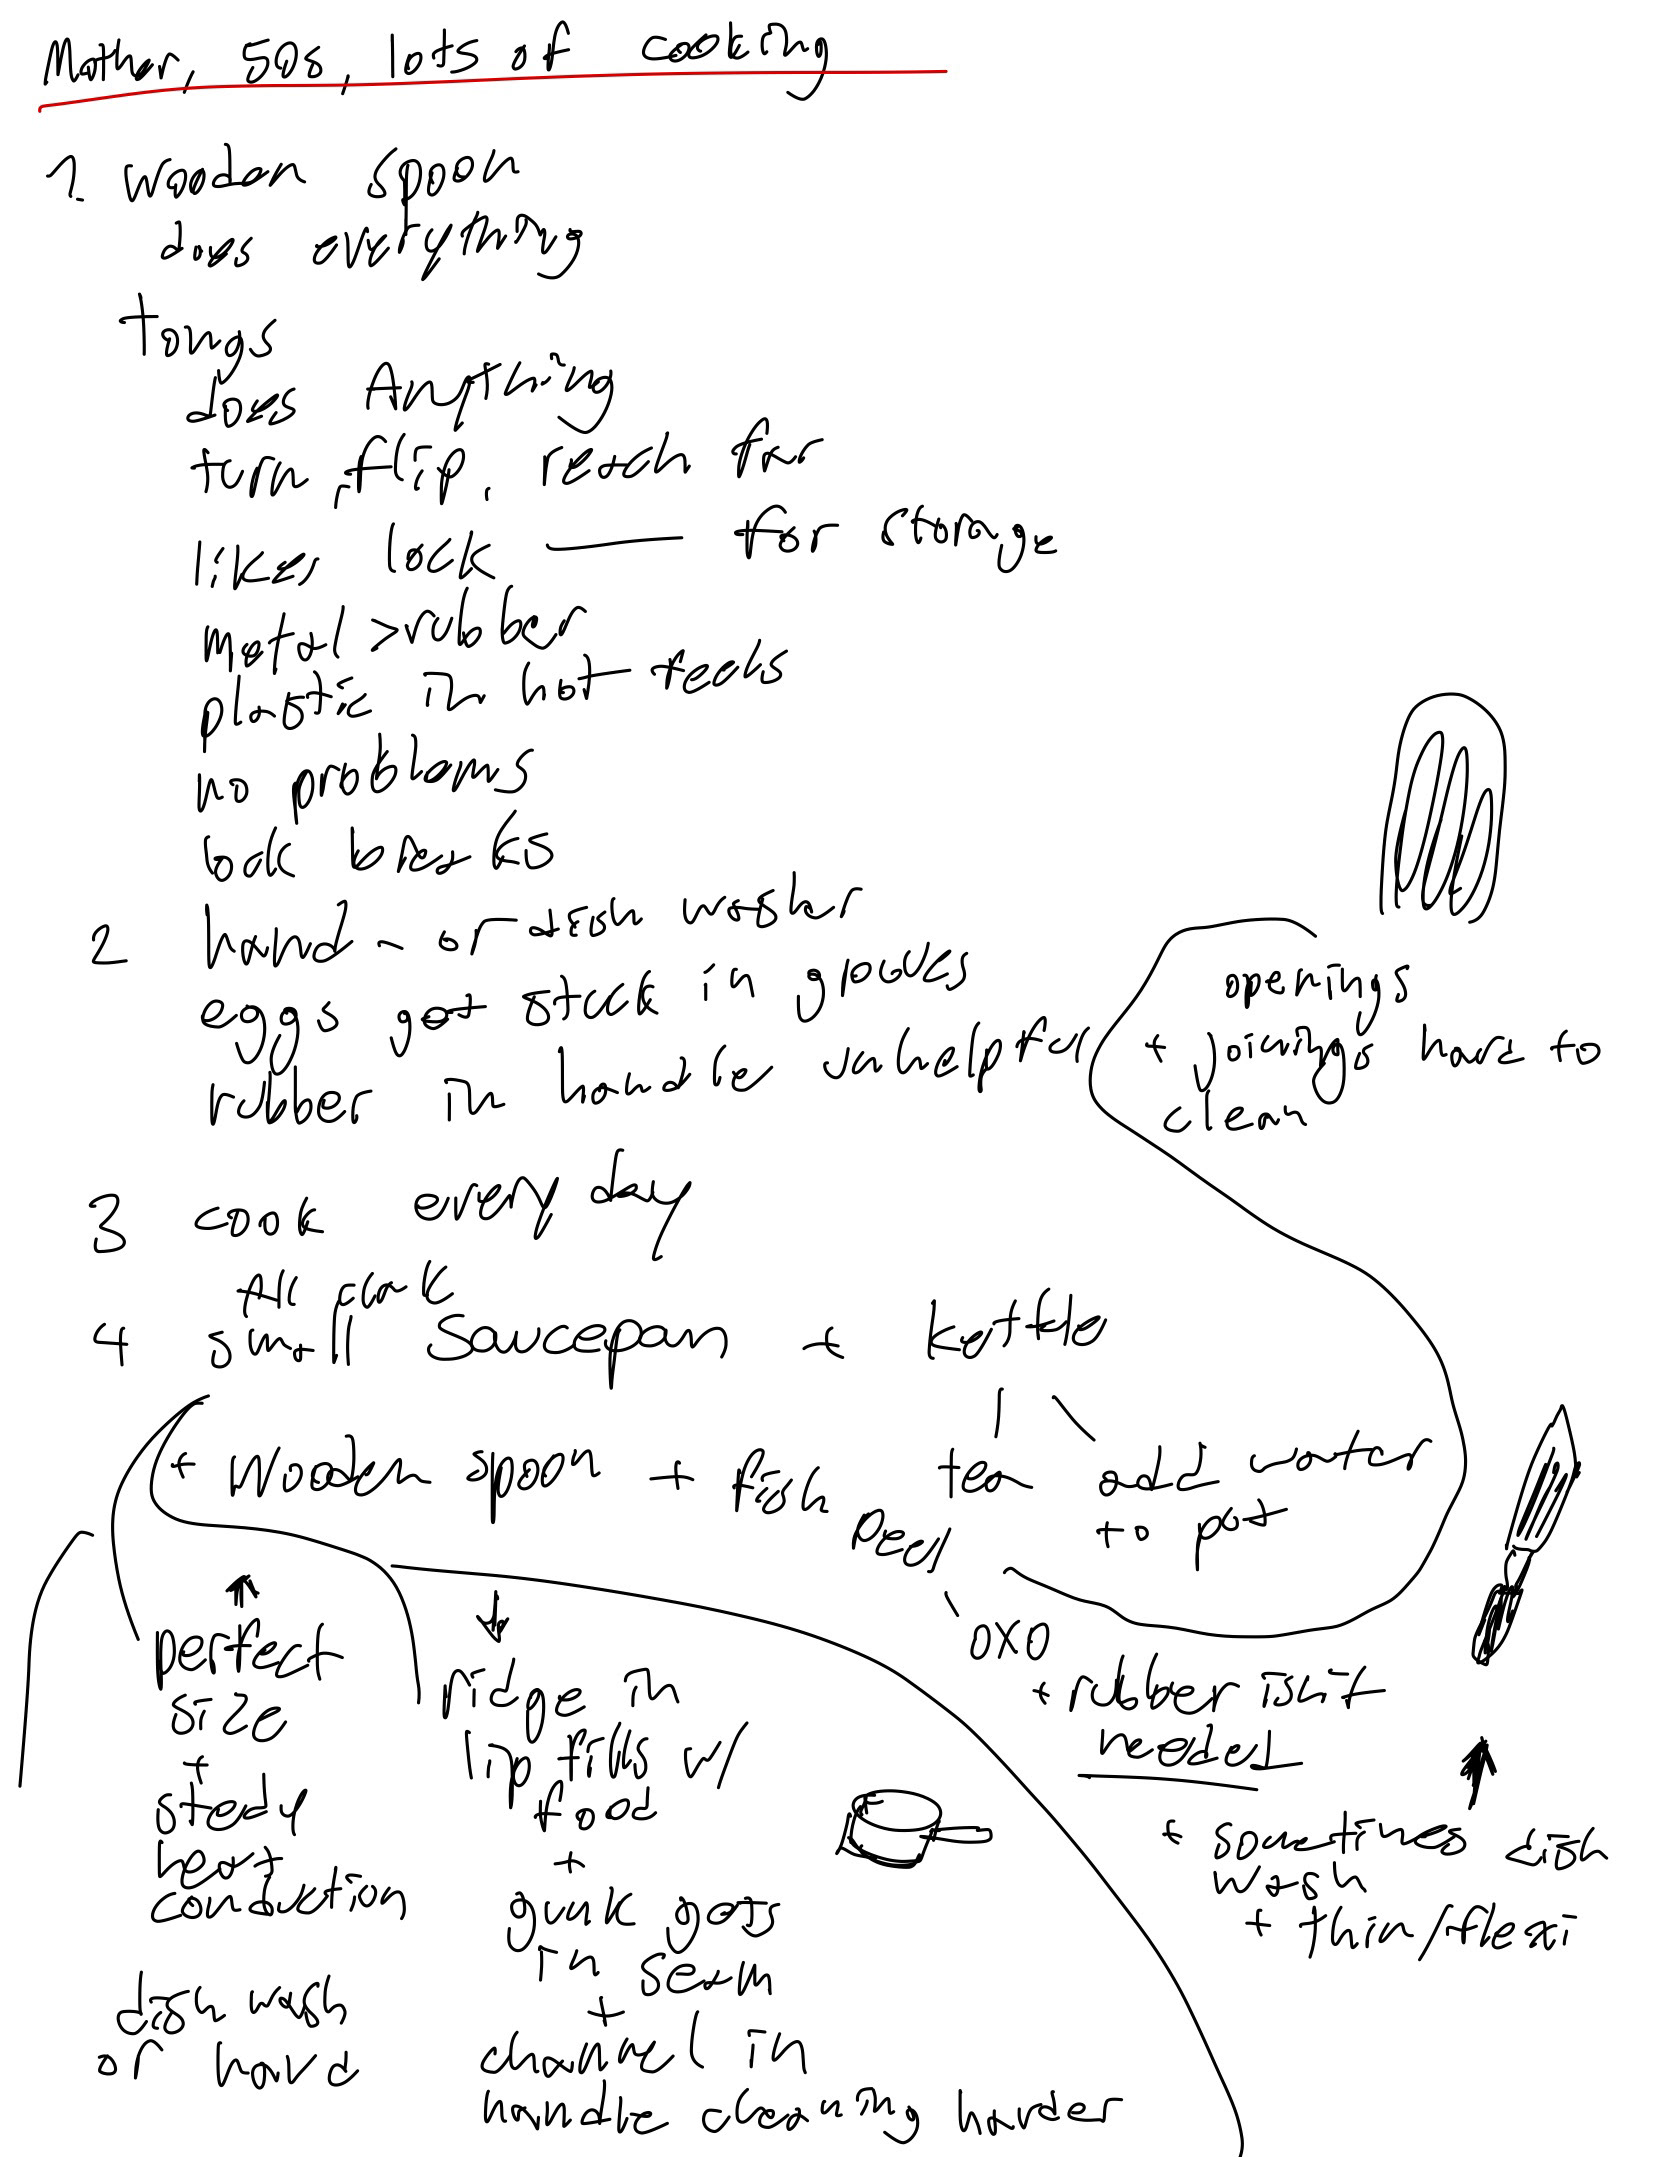 Mother, 50s, lots of cooking
1. wooden spoon
does everything
tongs
does Anything
turn, flip, reach far
likes lock — for storage
metal > rubber
plastic in hot feels
no problems
lock breaks
2 hand - or dish washer
eggs get stuck in grooves
rubber in handle unhelpful
openings
+ joinings hard to
clean
3 cook every day
All clad
4 small saucepan + kettle
+ wooden spoon + fish
peel
tea
add water
to pot
OXO
+ rubber isn't
needed
+ sometimes dish
wash
+ thin/flexi
perfect
size
+
stedy
heat
conduction
dish wash
or hand
ridge in
lip fills w/
food
+
gunk gets
in seam
+
channel in
handle cleaning harder